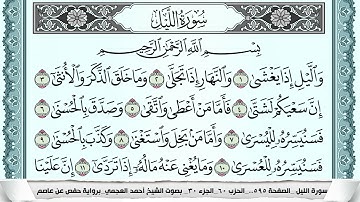 سُورَةُ اللَّيْلِ
بِسْمِ اللَّهِ الرَّحْمَٰنِ الرَّحِيمِ
وَالَّيْلِ إِذَا يَغْشَىٰ ١ وَالنَّهَارِ إِذَا تَجَلَّىٰ ٢ وَمَا خَلَقَ الذَّكَرَ وَالْأُنثَىٰ ٣
إِنَّ سَعْيَكُمْ لَشَتَّىٰ ٤ فَأَمَّا مَنْ أَعْطَىٰ وَاتَّقَىٰ ٥ وَصَدَّقَ بِالْحُسْنَىٰ ٦
فَسَنُيَسِّرُهُ لِلْيُسْرَىٰ ٧ وَأَمَّا مَن بَخِلَ وَاسْتَغْنَىٰ ٨ وَكَذَّبَ بِالْحُسْنَىٰ ٩
فَسَنُيَسِّرُهُ لِلْعُسْرَىٰ ١٠ وَمَا يُغْنِي عَنْهُ مَالُهُ إِذَا تَرَدَّىٰ ١١ إِنَّ عَلَيْنَا
سورة الليل .. الصفحة ٥٩٥ .. الحزب ٦٠ .. الجزء ٣٠ .. بصوت الشيخ أحمد العجمي .. برواية حفص عن عاصم